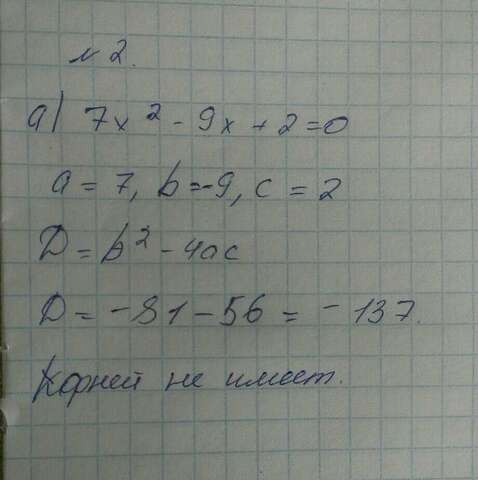 №2.
а) 7x² - 9x + 2 = 0
a = 7, b = -9, c = 2
D = b² - 4ac
D = -81 - 56 = -137.
Корней не имеет.